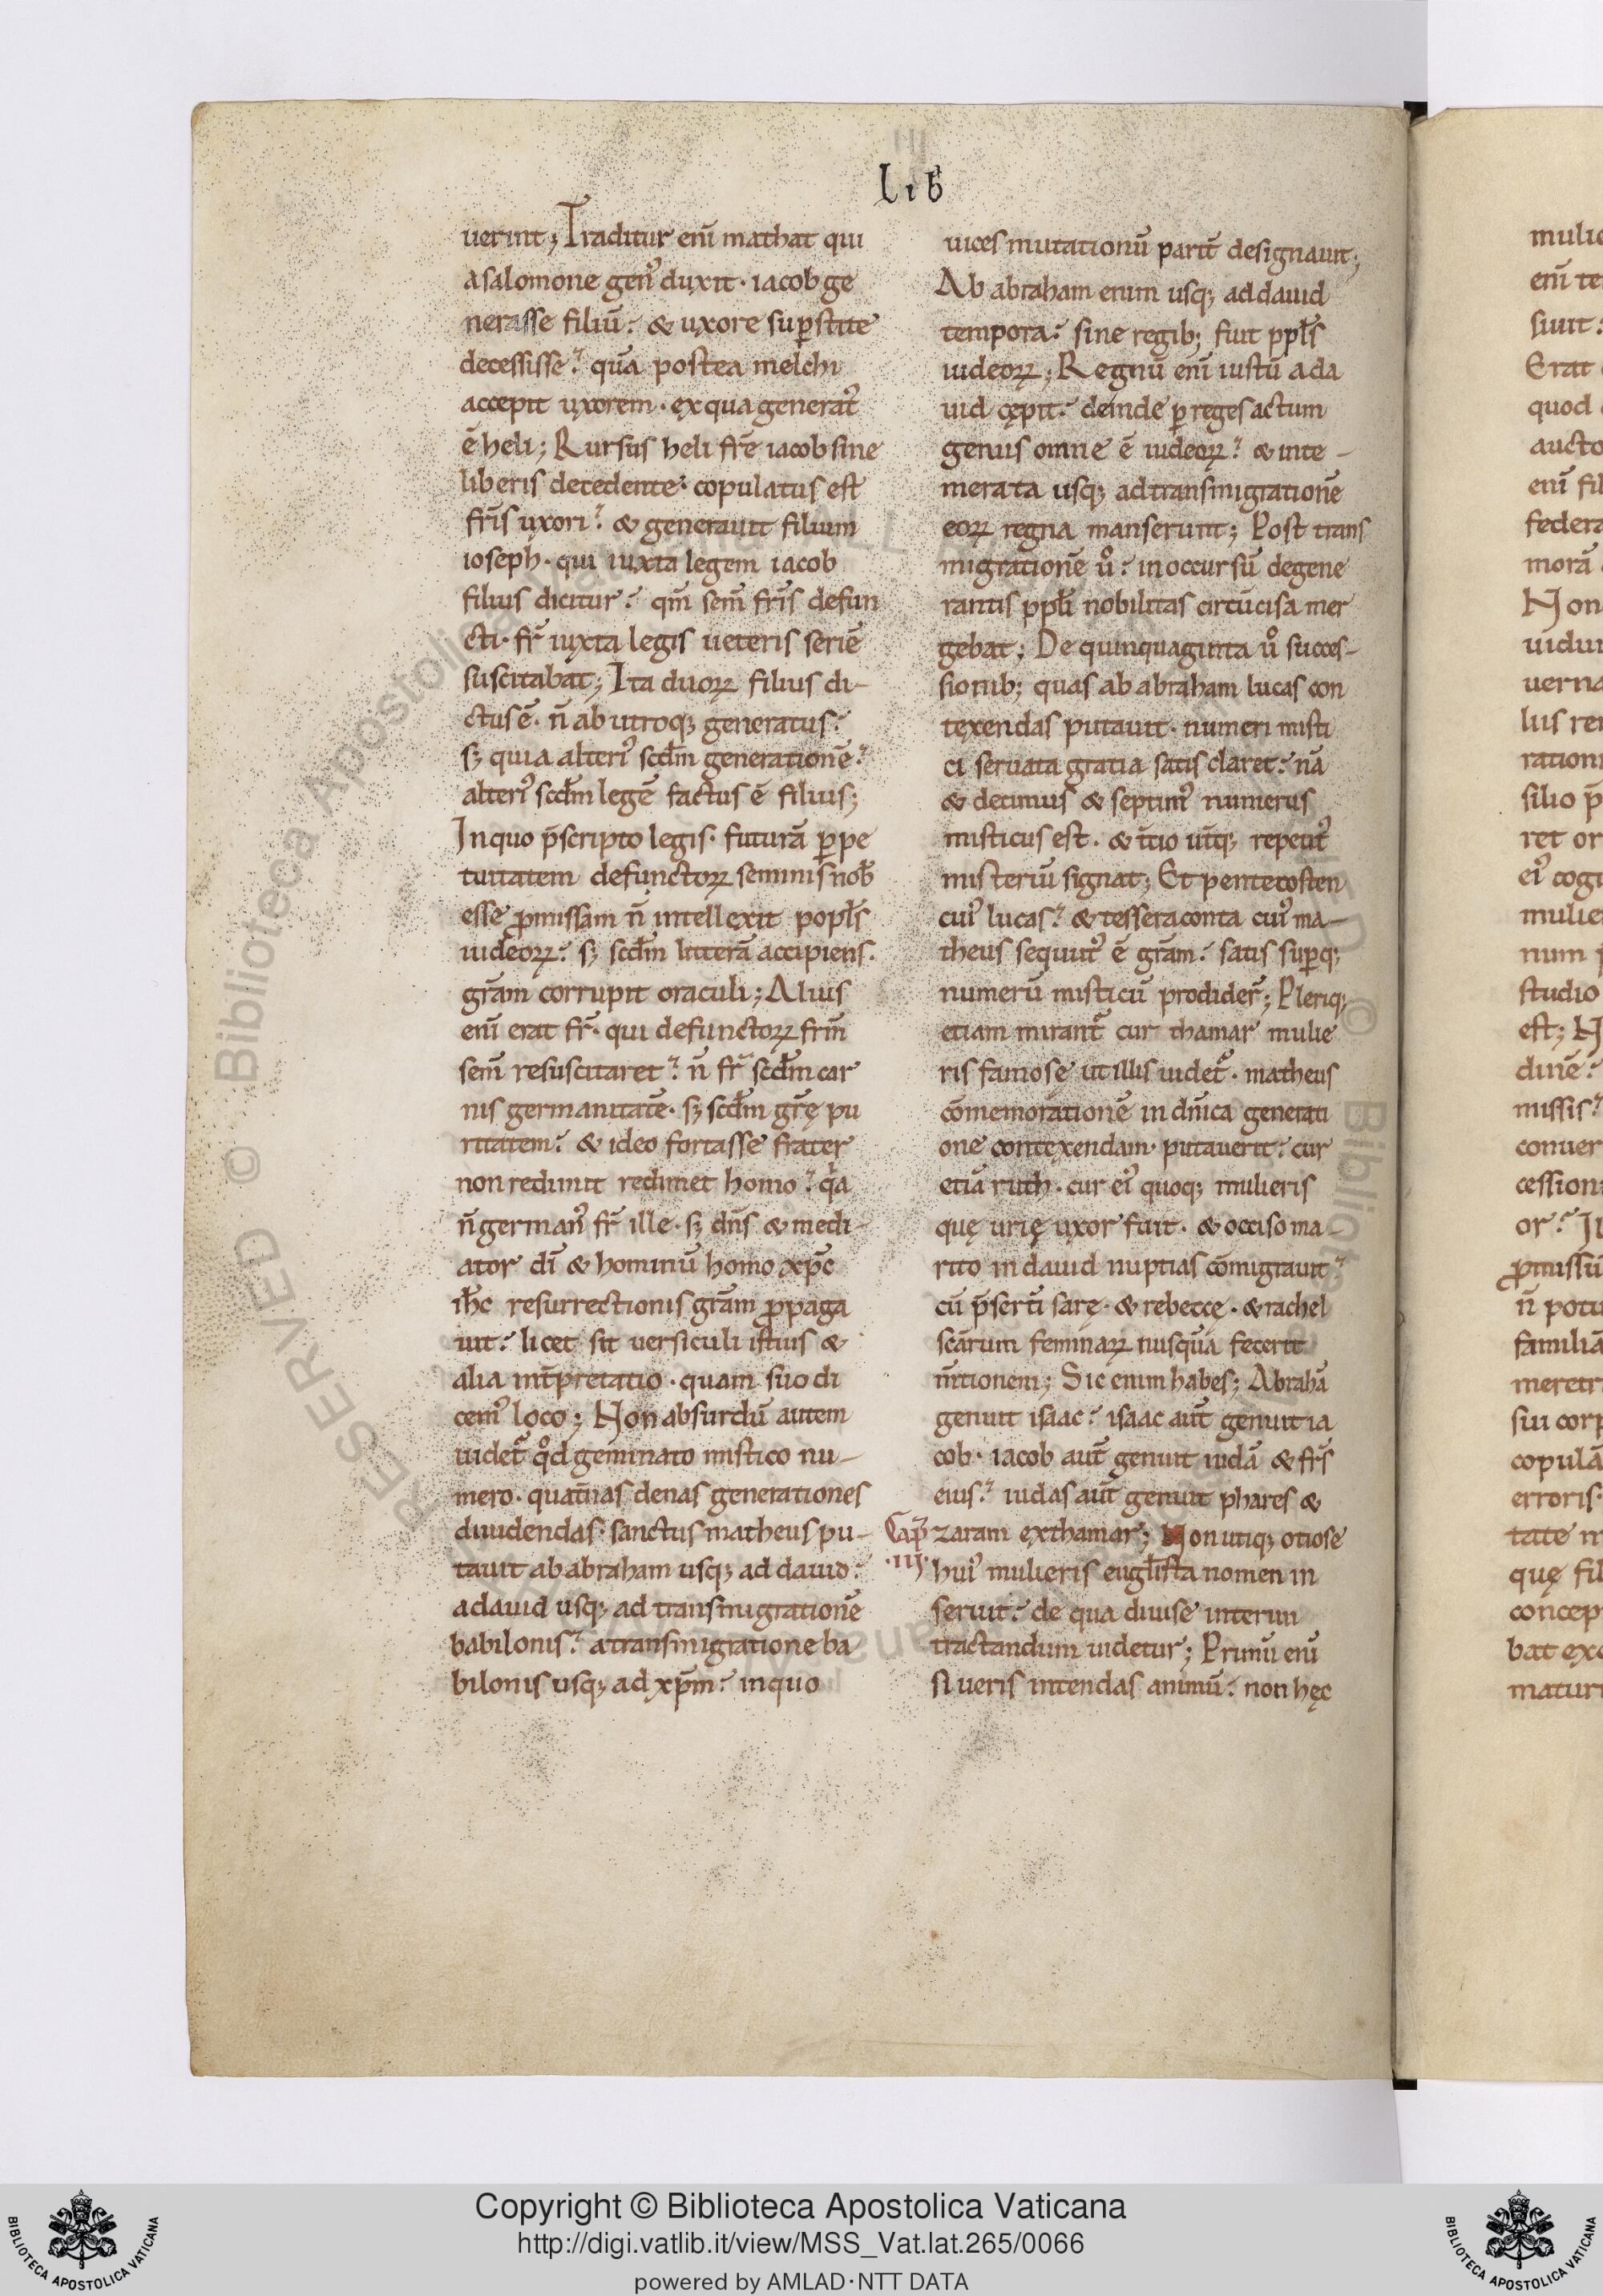 Lib
uerint; Traditur enī mathat qui
a salomone genꝰ duxit · iacob ge
nerasse filiū? & uxore suꝑstite
decessisse? quā postea melchi
accepit uxorem · ex qua generatꝰ
ē heli; Rursus heli frē iacob sine
liberis decedente? copulatus est
fr̄is uxori? & generauit filium
ioseph · qui iuxta legem iacob
filius dicitur? qm̄ sem̄ fr̄is defun
cti · fr̄ iuxta legis ueteris seriē
suscitabat; Ita duoꝝ filius di-
ctus ē · n̄ ab utroqꝫ generatus?
sꝫ quia alterꝰ scd̄m generationē?
alterꝰ scd̄m legē factus ē filius;
In quo p̄scripto legis · futurā ꝑpe
tuitatem defunctoꝝ seminis nob̄
esse ꝓmissam n̄ intellexit popl̄s
iudeoꝝ? sꝫ scd̄m litterā accipiens ·
gr̄am corrupit oraculi; Alius
enī erat fr̄ · qui defunctoꝝ frm̄
sem̄ resuscitaret? n̄ fr̄ scd̄m car
nis germanitatē · sꝫ scd̄m gr̄ę pu
ritatem? & ideo fortasse frater
non redimit redimet homo? q̄a
n̄ germanꝰ fr̄ ille · sꝫ dn̄s & medi-
ator dī & hominū homo xp̄c
ih̄c resurrectionis gr̄am ꝓpaga
uit? licet sit uersiculi istius &
alia int̄pretatio · quam suo di
cemꝰ loco; Non absurdū autem
uidet᷑ qd̄ geminato mistico nu-
mero · quat̄nas denas generationes
diuidendas · sanctus matheus pu-
tauit ab abraham usqꝫ ad dauid?
a dauid usqꝫ ad transmigrationē
babilonis? a transmigratione ba
bilonis usqꝫ ad xp̄m? in quo
uices mutationū parit̄ designauit;
Ab abraham enim usqꝫ ad dauid
tempora? sine regibꝫ fuit ppl̄s
iudeoꝝ; Regnū enī iustū a da
uid cępit? deinde ꝑ reges actum
genus omne ē iudeoꝝ? & inte-
merata usqꝫ ad transmigrationē
eoꝝ regna manserunt; Post trans
migrationē uº? in occursū degene
rantis ppl̄i nobilitas circūcisa mer
gebat; De quinquaginta uº succes-
sionibꝫ quas ab abraham lucas con
texendas putauit · numeri misti
ci seruata gratia satis claret? nā
& decimus & septimꝰ numerus
misticus est · & t̄tio ut̄qꝫ repetitꝰ
misteriū signat; Et pentecosten
cuiꝰ lucas? & tesseraconta cuiꝰ ma-
theus sequutꝰ ē gr̄am? satis suꝑqꝫ
numerū misticū prodider̄; Pleriqꝫ
etiam mirant᷑ cur thamar mulie
ris famose ut illis uidet᷑ · matheus
cōmemorationē in dn̄ica generati
one contexendam · putauerit? cur
etiā ruth · cur eiꝰ quoqꝫ mulieris
quę urię uxor fuit · & occiso ma-
rito in dauid nuptias cōmigrauit?
cū p̄serti sarę · & rebeccę · & rachel
scārum feminaꝝ nusquā fecerit
m̄tionem; Sic enim habes; Abrahā
genuit isaac? isaac aut̄ genuit ia
cob · iacob aut̄ genuit iudā & fr̄s
eius? iudas aut̄ genuit phares &
Cap̄ zaram ex thamar; Non utiqꝫ otiose
·III· huiꝰ mulieris eugl̄ista nomen in
seruit? de qua diuise interim
tractandum uidetur; Primū enī
si ueris intendas animū? non hęc
mulie
enī te
suit?
Erat
quod
aucto
enī fil
federa
morā
Non
uidur
uerna
lus rer
rationi
silio p̄
ret or
eiꝰ cogi
mulier
num
studio
est; N
dinē?
missis?
conuer
cession
or? Il
ꝓmissū
n̄ potu
familiā
meretri
sui corp
copulā
erroris ·
tate m
quę fil
concep
bat exc
maturi
© Biblioteca Apostolica Vaticana
RESERVED
Copyright © Biblioteca Apostolica Vaticana
http://digi.vatlib.it/view/MSS_Vat.lat.265/0066
powered by AMLAD·NTT DATA
BIBLIOTECA APOSTOLICA VATICANA
BIBLIOTECA APOSTOLICA VATICANA